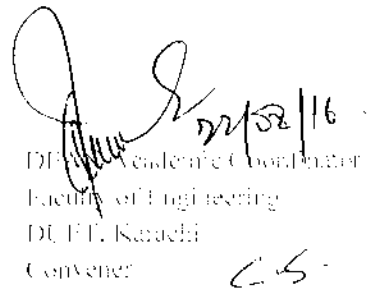 22/02/16
Academic Coordinator
Faculty of Engineering
DUET, Karachi
Convener
C.S.